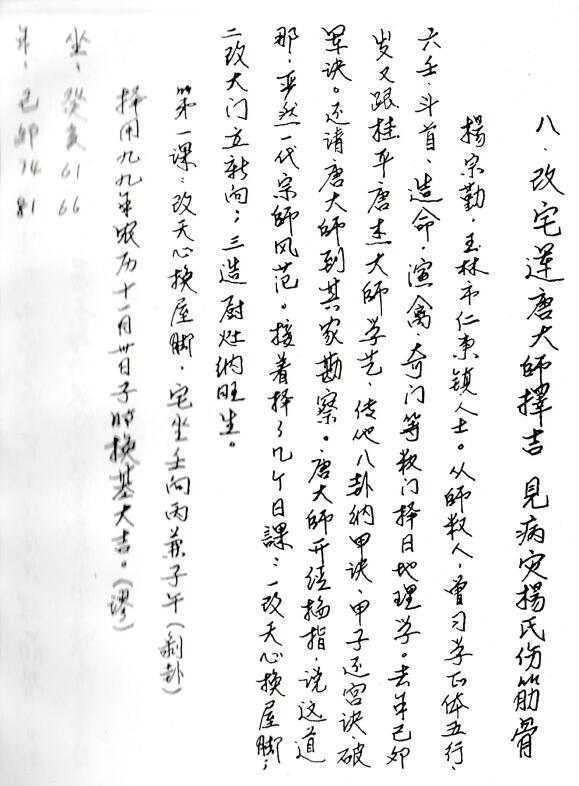 八、改宅逢唐大师擇吉 見病灾揚氏伤筋骨
揚宗勤，玉林市仁東镇人士。从师数人，曾习学正体五行、
六壬、斗首、造命，演禽，奇门等数门择日地理学。去年己卯
岁又跟桂平唐杰大师学艺，传他八卦纳甲诀、甲子还宫诀、破
军诀。还请唐大师到其家勘察。唐大师开经掐指，说这道
那，亚然一代宗师风范。接着择了几个日課：一改天心换屋脚；
二改大门立新向；三造厨灶纳旺生。
第一课：改天心换屋脚，宅坐壬向丙兼子午（剥卦）
择用九九年农历十一月廿日子时换基大吉。（谬）
坐：癸亥 61 66
年：己卯 74 81